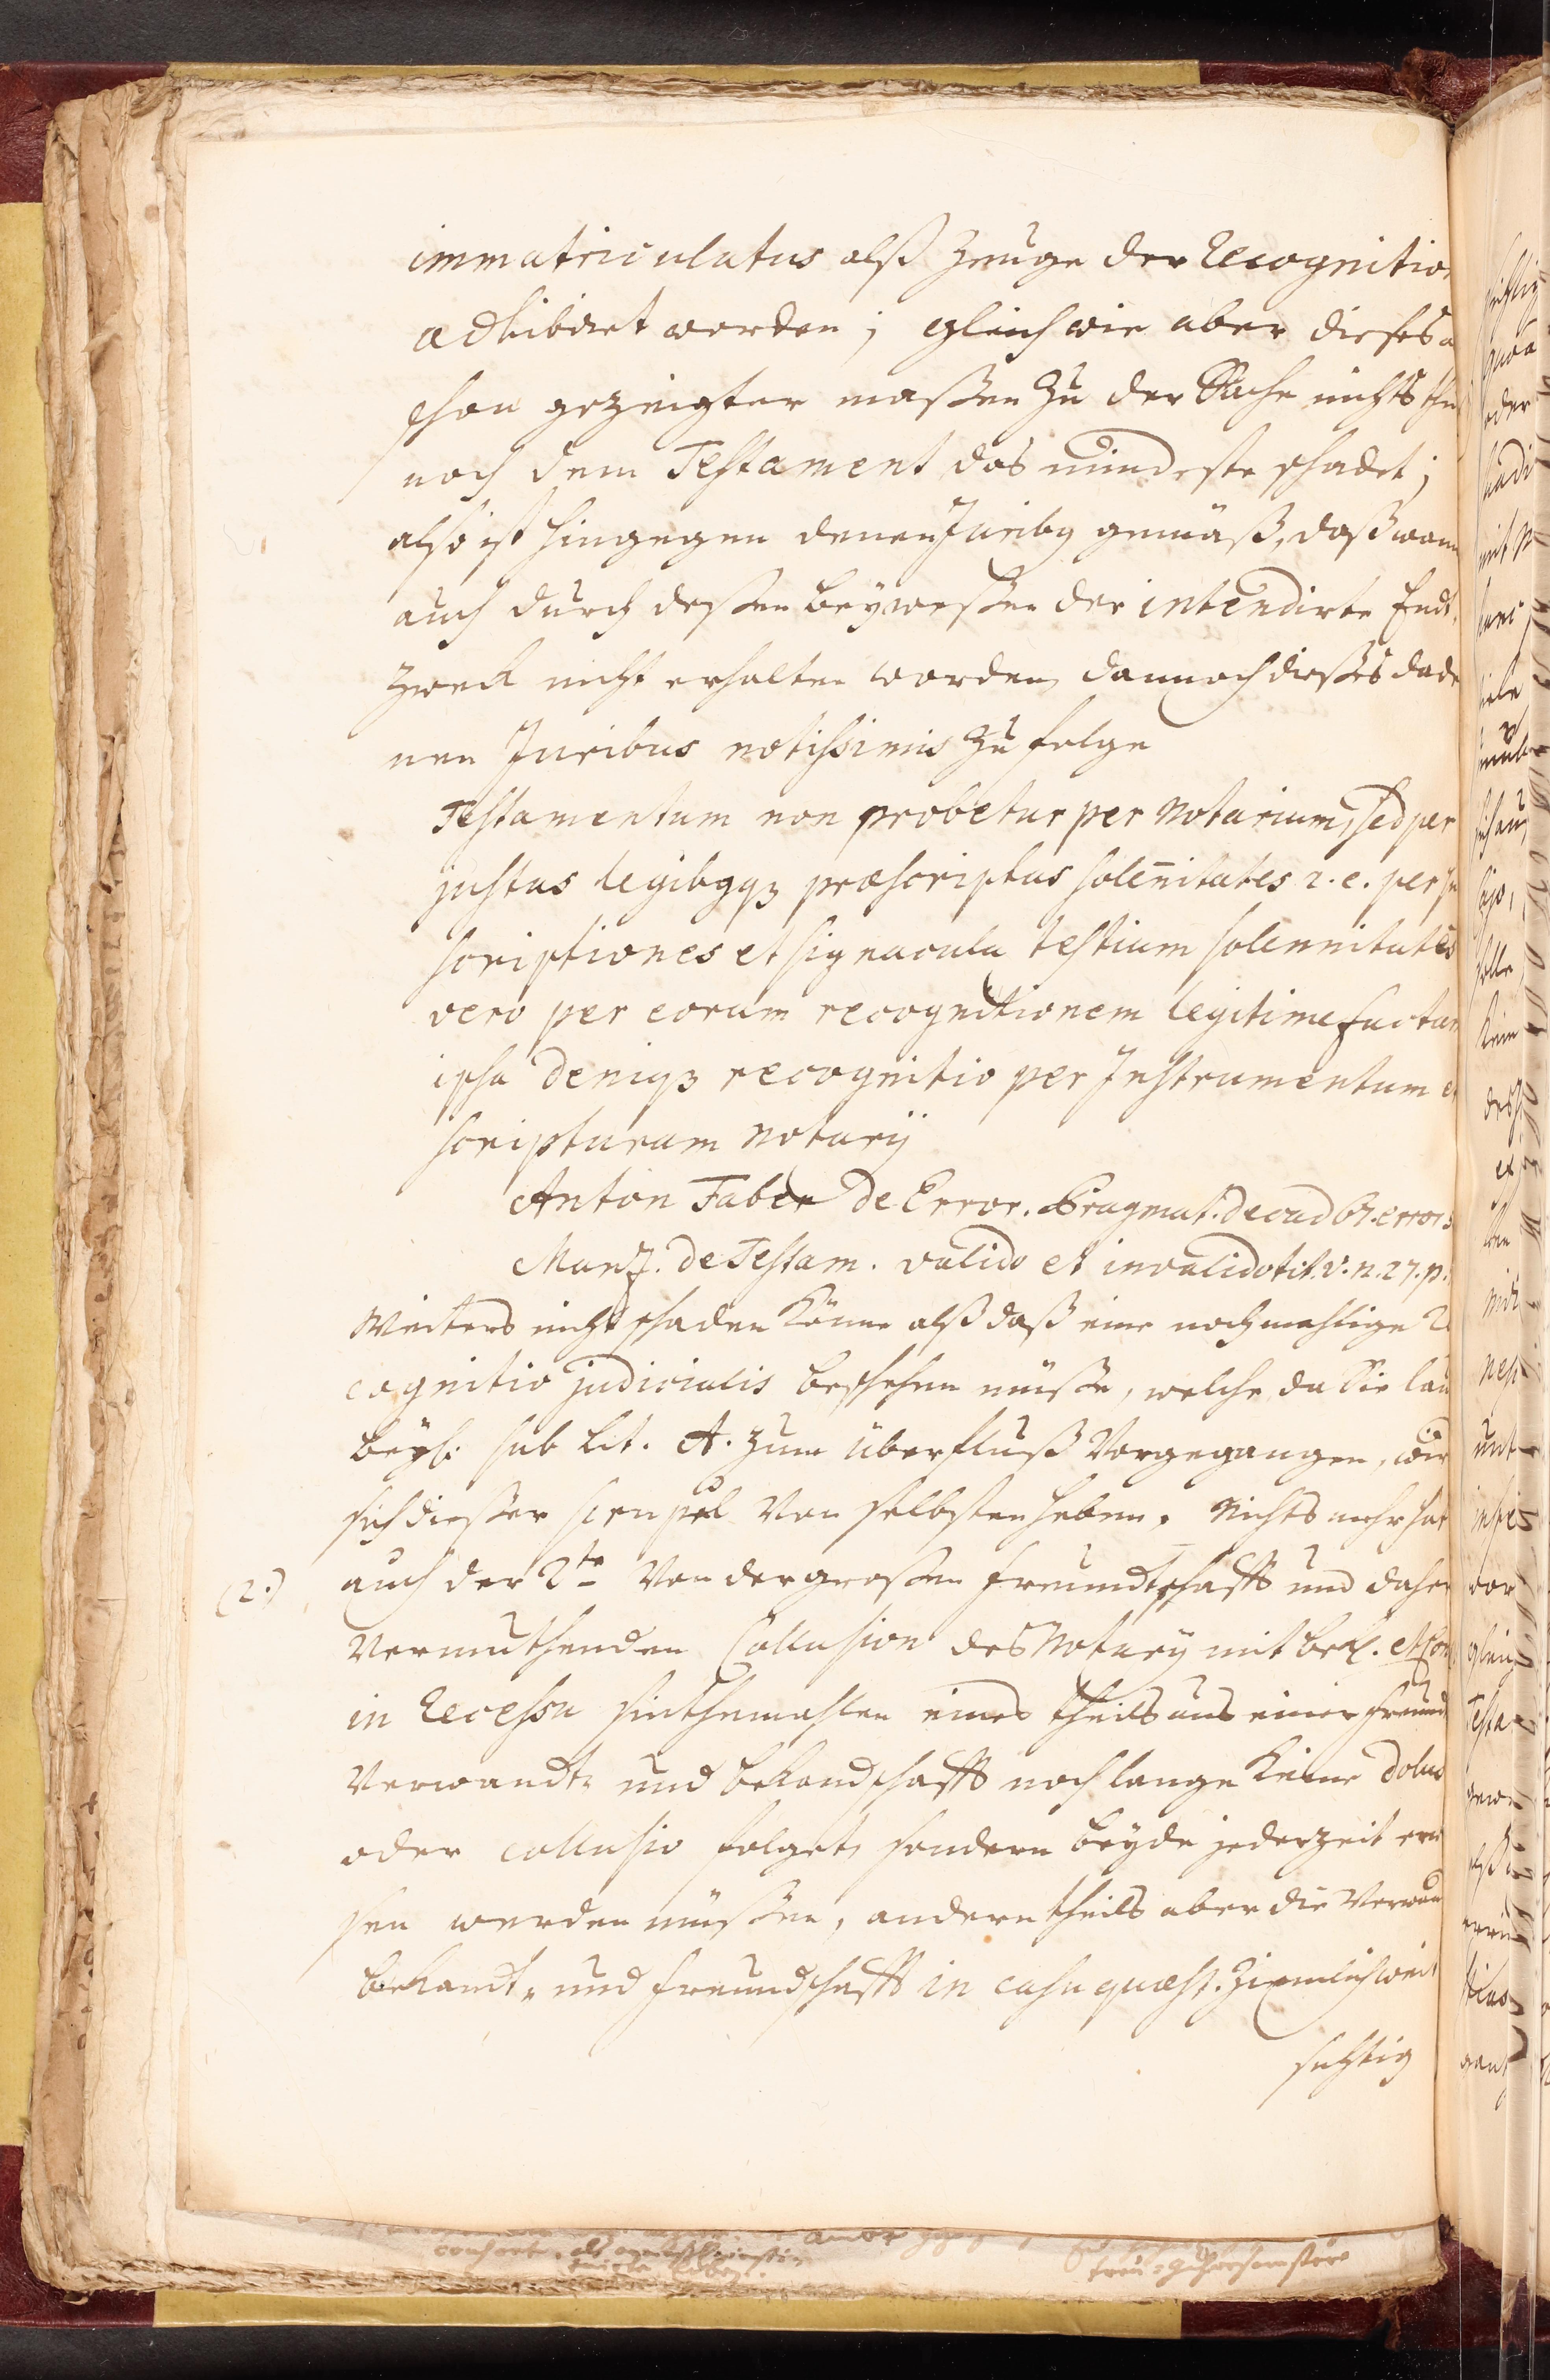 immatriculatus alß Zeuge der Recognitio
adhibiret worden; gleichwie aber dieses
schon gezeigter maßen zu der Sache nichts thu
noch dem Testament das mindeste schadet;
also ist hingegen denen Juribg gemäß, daß wann
auch durch deßen beyweßen der intendirte Endt-
zweck nicht erhalten worden, dannoch dießes
nen Juribus notissimis zu folge
Testamentum non probetur per Notarium, sed per
justas legibgqz præscriptas solennitates i. e. per
scriptiones et signacula testium solennitates
vero per eorum recognitionem legitime factam
ipsa deniqz recognitio per Instrumentum
scripturam Notarij
Anton Faber de Error. Pragmat. decad 67. error
Manz. de Testam. valido et invalido tit. v. n. 27. p.
weiters nicht schaden könne alß daß eine nochmahlige Re
cognitio judicialis beschehen müße, welche da Sie lau
beyl: sub Lit. A. zum überfluß Vorgegangen,
sich dießer scrupel von selbsten heben. Nichts mehr hat
(2.) auch der 2te von der großen freundtschafft und daher
vermuthenden Collusion des Notarij mit bekl.
in Recessu sinthemahlen eines theils aus einer freund
verwandt- und bekandschafft noch lange keine dolus
oder collusio folget, sondern beyde jederzeit erw
sen werden müßen, anderntheils aber die Verwan
bekandt- und freundschafft in casu quæst. ziemlich weit
sichtig